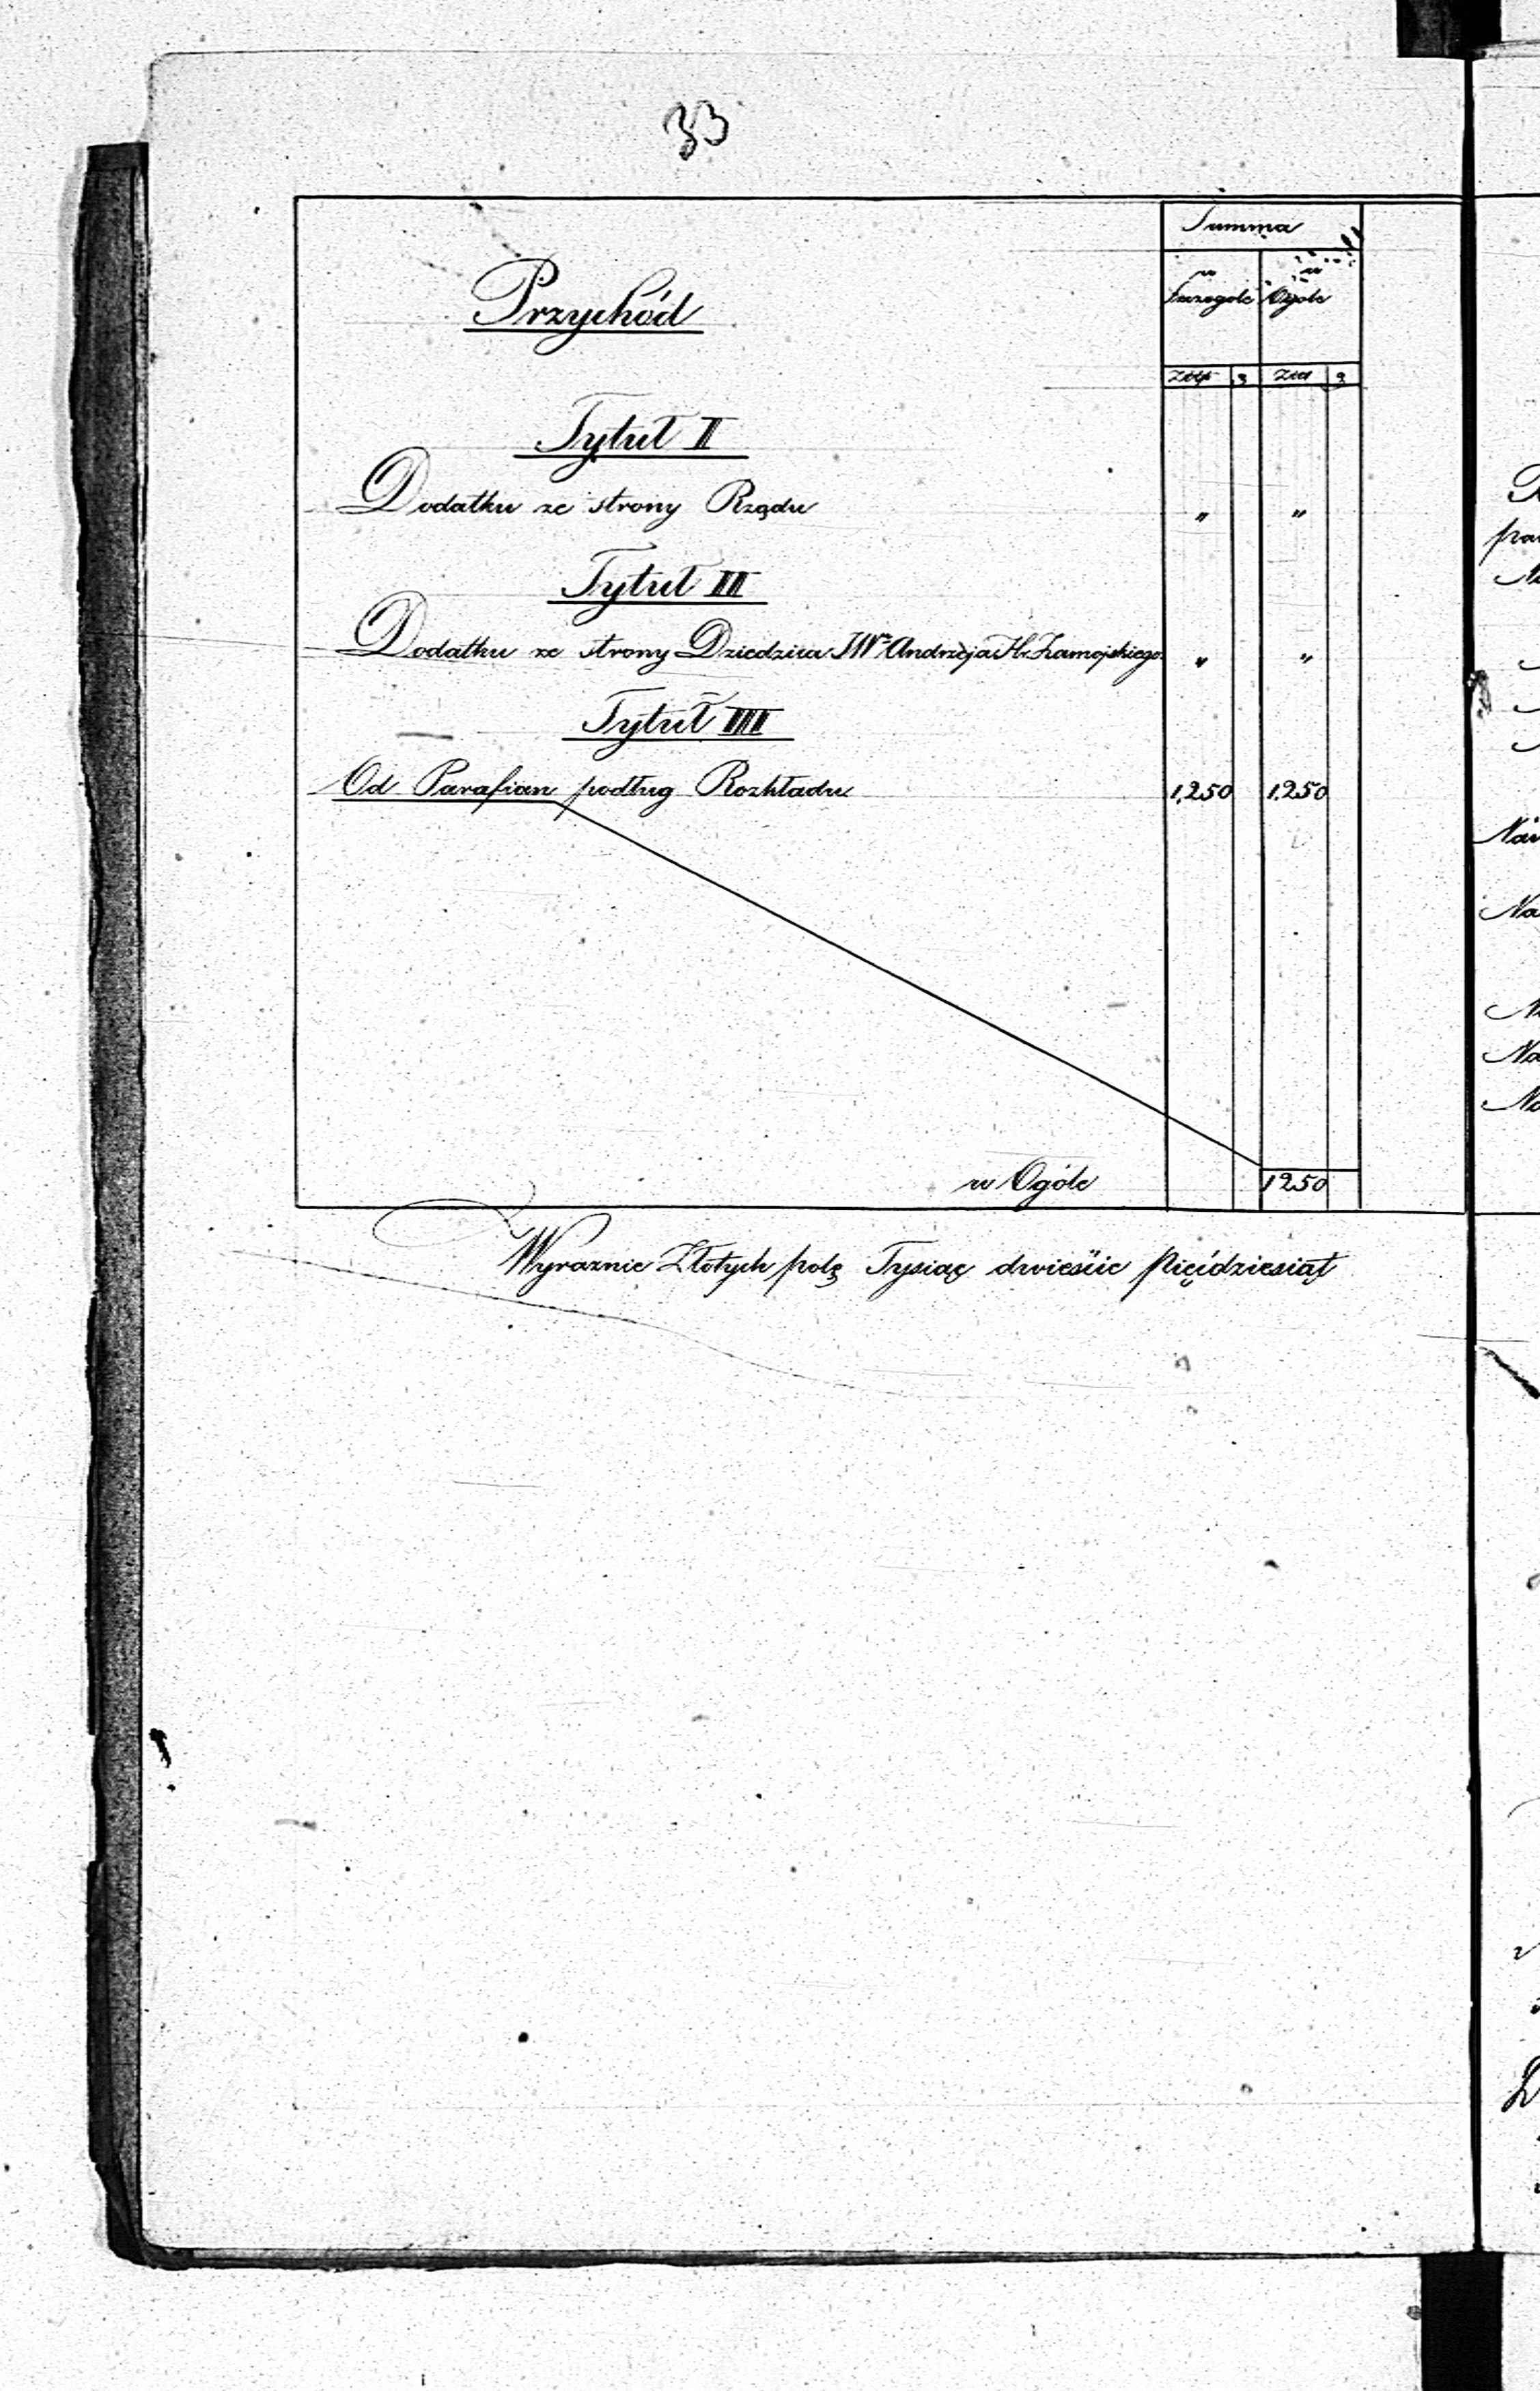 33
Summa
Przychód
w Szczególe w Ogóle
Złótp g Złot g
Tytuł I
Dodatku ze strony Rządu " "
Tytuł II
Dodatku ze strony Dziedzica JW° Andrzeja Hr. Zamojskiego " "
Tytuł III
Od Parafian podług Rozkładu 1,250 1.250
w Ogóle 1250
Wyraznie Złotych polę Tysiąc dwieście Pięćdziesiąt